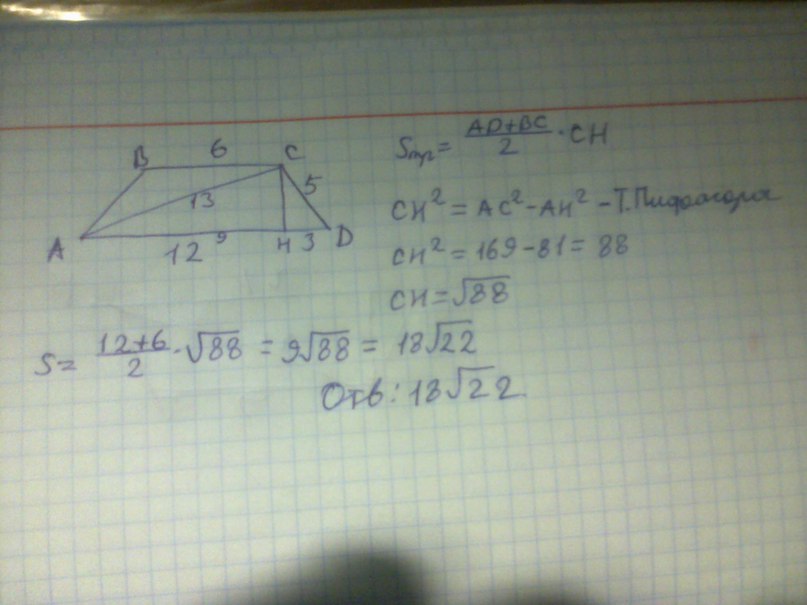 B 6 C
13 5
A 12 9 H 3 D
Sтр = AD+BC/2 · CH
CH² = AC² - AH² - Т. Пифагора
CH² = 169 - 81 = 88
CH = √88
S = 12+6/2 · √88 = 9√88 = 18√22
Отв: 18√22